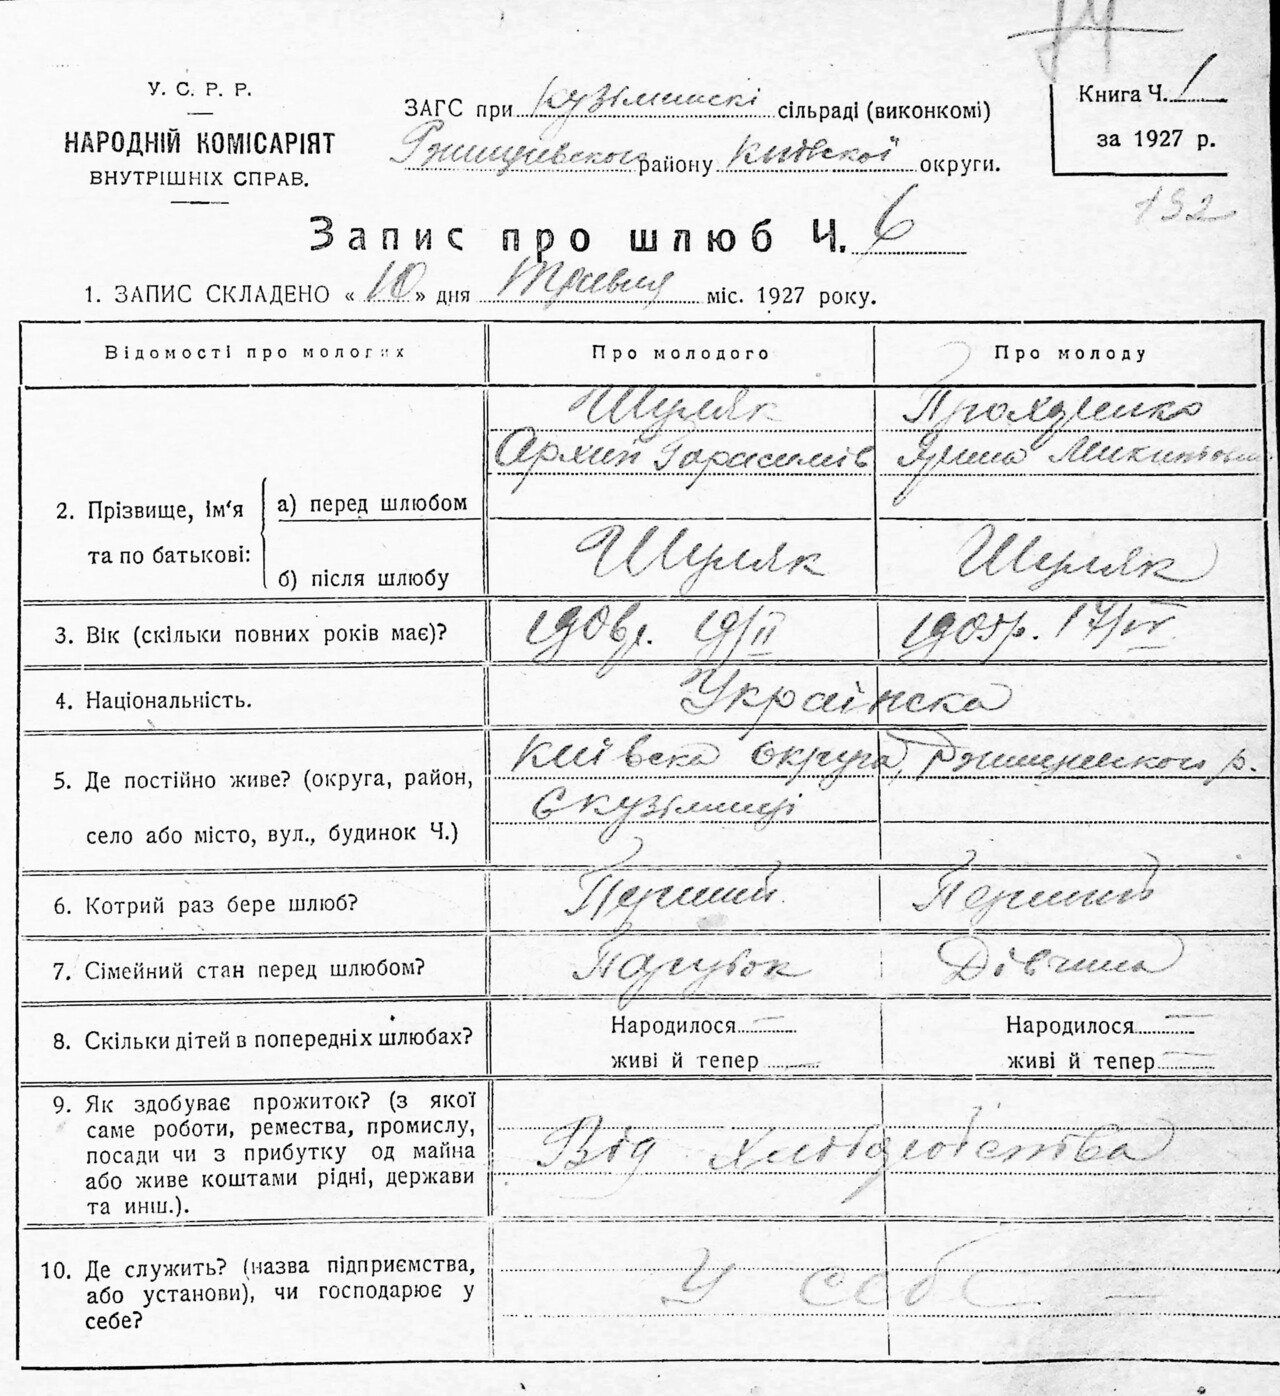 У. С. Р. Р.
НАРОДНІЙ КОМІСАРІЯТ
ВНУТРІШНІХ СПРАВ.
ЗАГС при Кузіминскі сільраді (виконкомі)
району Київскої округи.
Книга Ч. 1
за 1927 р.
192
Запис про шлюб Ч. 6
1. ЗАПИС СКЛАДЕНО «10» дня Травня міс. 1927 року.
Відомості про молодих Про молодого Про молоду
Шуляк
Архип Гарасимів Ярина Микитовна
2. Прізвище, ім'я та по батькові:
а) перед шлюбом
б) після шлюбу Шуляк Шуляк
3. Вік (скільки повних років має)? 19/II 17/IV
4. Національність. Українска
5. Де постійно живе? (округа, район, Київска округа, Ржищевского р.
село або місто, вул., будинок Ч.) С Кузіминці
6. Котрий раз бере шлюб? Перший Перший
7. Сімейний стан перед шлюбом? Парубок Дівчина
8. Скільки дітей в попередніх шлюбах? Народилося — Народилося —
живі й тепер — живі й тепер —
9. Як здобуває прожиток? (з якої
саме роботи, ремества, промислу,
посади чи з прибутку од майна Від хліборобства
або живе коштами рідні, держави
та инш.).
10. Де служить? (назва підприємства,
або установи), чи господарює у У себе —
себе?